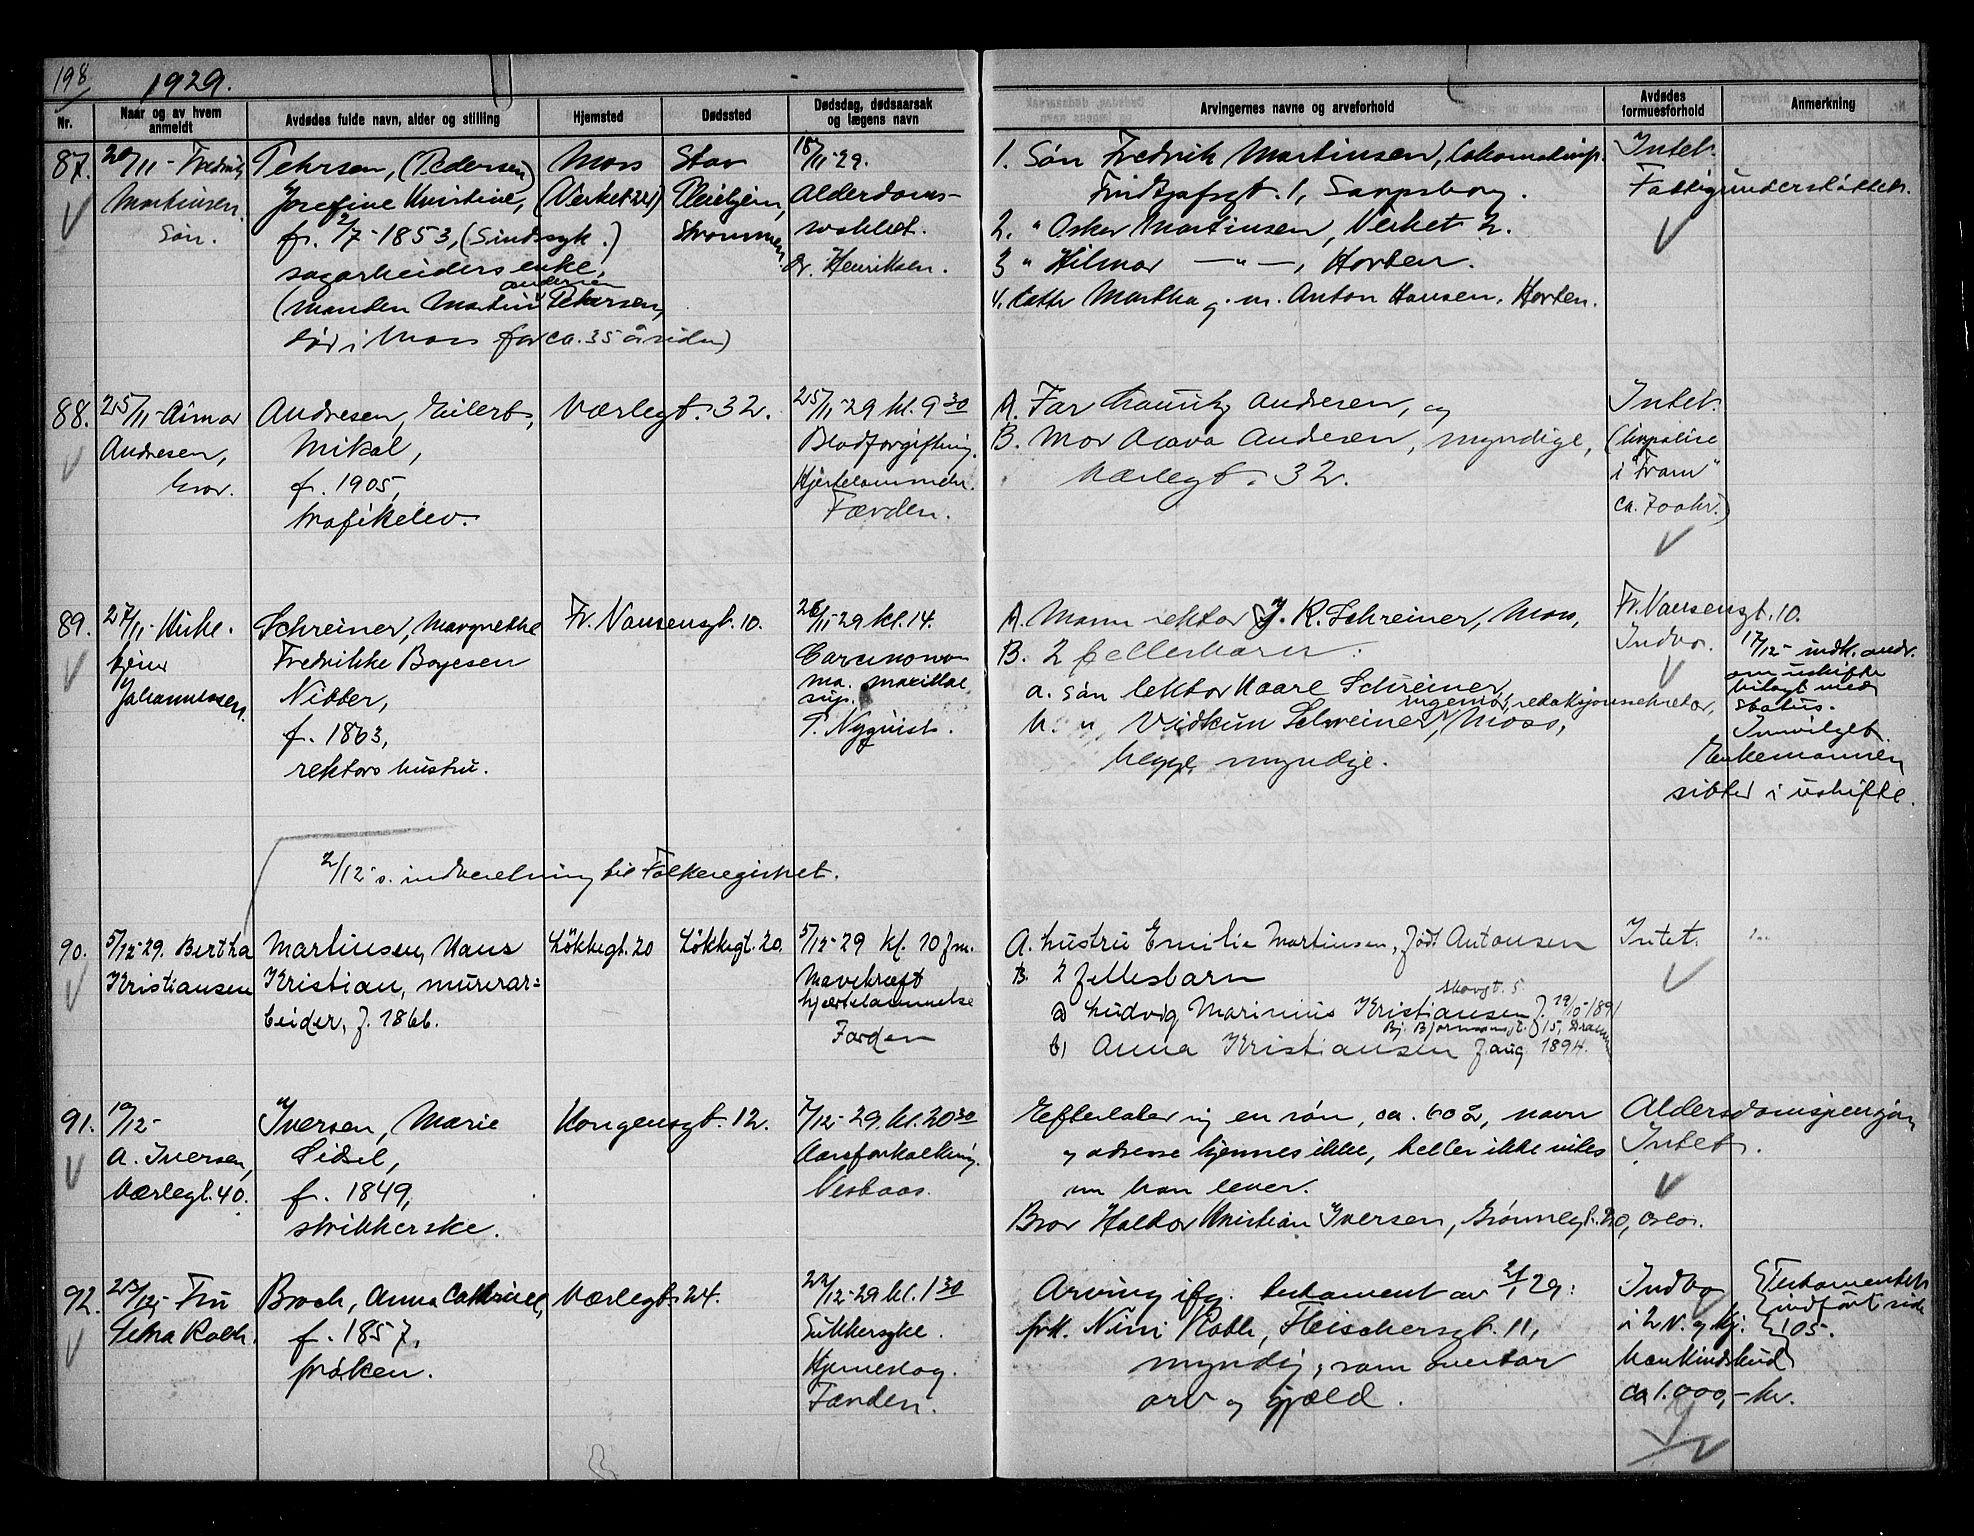 198
1929.
Nr.
Naar og av hvem anmeldt
Avdødes fulde navn, alder og stilling
Hjemsted
Dødssted
Dødsdag, dødsaarsak og lægens navn
Arvingernes navne og arveforhold
Avdødes formuesforhold
Anmerkning
87.
20/11- Fredrik
Martinsen.
Søn.
Petersen, (Pedersen)
Josefine Kristine,
f. 2/7-1853, (Sindssyk.)
sagarbeiders enke,
andersen
(manden Martin Petersen,
død i Moss for ca. 35 år siden)
Moss
(Verket 22)
Stav
Pleiehjem,
Strømmen
18/11-29.
Alderdoms-
svakhet.
Dr. Henriksen.
1. Søn Fredrik Martinsen,
Fridtjofsgt. 1, Sarpsborg.
2. " Oskar Martinsen, Verket 2.
3 " Hilmar —"—, Horten.
4. Datter Martha g. m. Anton Hansen, Horten.
Intet.
Fattigunderstøttet.
88.
25/11- Aimar
Andresen,
bror.
Andresen, Eilert
Mikal,
f. 1905,
trafikelev.
Værlegt. 32.
25/11-29 kl. 9 30
Blodforgiftning.
Hjertelammelse.
Færden.
A. Far Lauritz Andresen, og
B. Mor Andresen, myndige,
Værlegt. 32.
Intet.
(livpolise
i "Fram"
ca. 700 kr.)
89.
27/11- Kirke-
tjener
Johannessen.
Schreiner, Margrethe
Fredrikke Boyesen
Nibber,
f. 1863,
rektors hustru.
Fr. Nansensgt. 10.
26/11-29 kl. 14.
Carcinoma
ma. maxillae
sup.
P. Nyquist.
A. Mann rektor J. K. Schreiner, Moss,
B. 2 fellesbarn:
a. søn lektor Kaare Schreiner,
ingeniør, redaksjonssekretær,
b. " Vidkun Schreiner, Moss,
begge myndige.
Fr. Nansensgt. 10.
Indbo.
17/12- indk. andr.
om uskifte
bilagt med
status.
Innvilget.
Enkemannen
sitter i uskifte.
2/12 s. indberetning til Folkeregistret.
90.
5/12-29. Bertha
Kristiansen
Martinsen, Hans
Kristian, murerar=
beider, f. 1866.
Løkkegt. 20
Løkkegt. 20.
5/12-29 kl. 10 fm.
Mavekræft
hjertelammelse
Færden
A. hustru Emilie Martinsen, født Antonsen
B. 2 fellesbarn
Skovgt. 5.
a) Ludvig Marinius Kristiansen f. 19/10-1891
Bj. Bjørnsonsgt. 15, Dramm
b) Anna Kristiansen f. aug. 1894.
Intet.
91.
10/12-
A. Iversen,
Værlegt. 40.
Iversen, Marie
Sidsel,
f. 1849,
strikkerske.
Kongensgt. 12.
7/12-29 kl. 20 30
Aareforkalkning.
Nesbaas.
Efterlater sig en søn, ca. 60 år, navn
og adresse kjennes ikke, heller ikke vites
om han lever.
Bror Haldor Kristian Iversen, Grønnegt. 20, Oslo.
Aldersdomspensjon
Intet.
92.
23/12- Fru
Petra Roth.
Broch, Anna Cathrine,
f. 1857,
frøken.
Værlegt. 24.
22/12-29 kl. 1 30
Sukkersyke.
Hjerneslag.
Færden.
Arving ifg. testament av 2/1 29:
frk. Nini Roth, Fleischersgt. 11,
myndig, som overtar
arv og gjæld.
Indbo
i 2 v. og kj.
bankindskud
ca 1.000,- kr.
Testamentet
indført side
105.